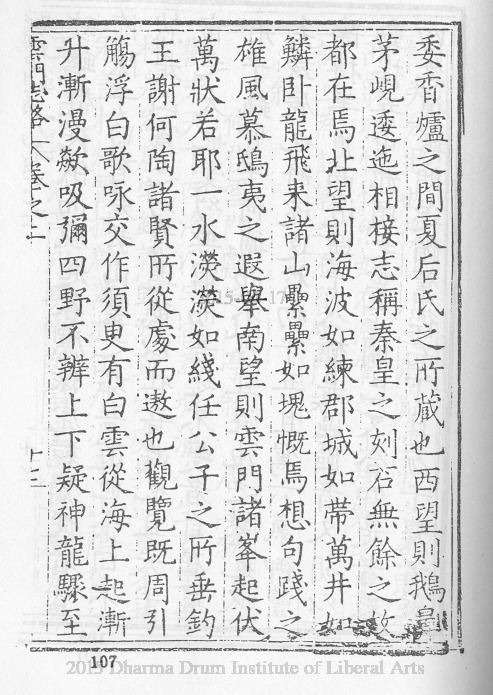 委香爐之間夏后氏之所藏也西望則鵝鼻
茅峴逶迤相接志稱秦皇之刻石無餘之故
都在焉北望則海波如練郡城如帶萬井如
鱗卧龍飛来諸山纍纍如塊慨焉想句踐之
雄風慕鴟夷之遐舉南望則雲門諸峯起伏
萬狀若耶一水濙濙如綫任公子之所垂釣
王謝何陶諸賢所從處而遨也觀覽既周引
觴浮白歌咏交作須臾有白雲從海上起漸
升漸漫欻吸彌四野不辨上下疑神龍驟至
雲門志略 卷之二 十二
107
2015 Dharma Drum Institute of Liberal Arts